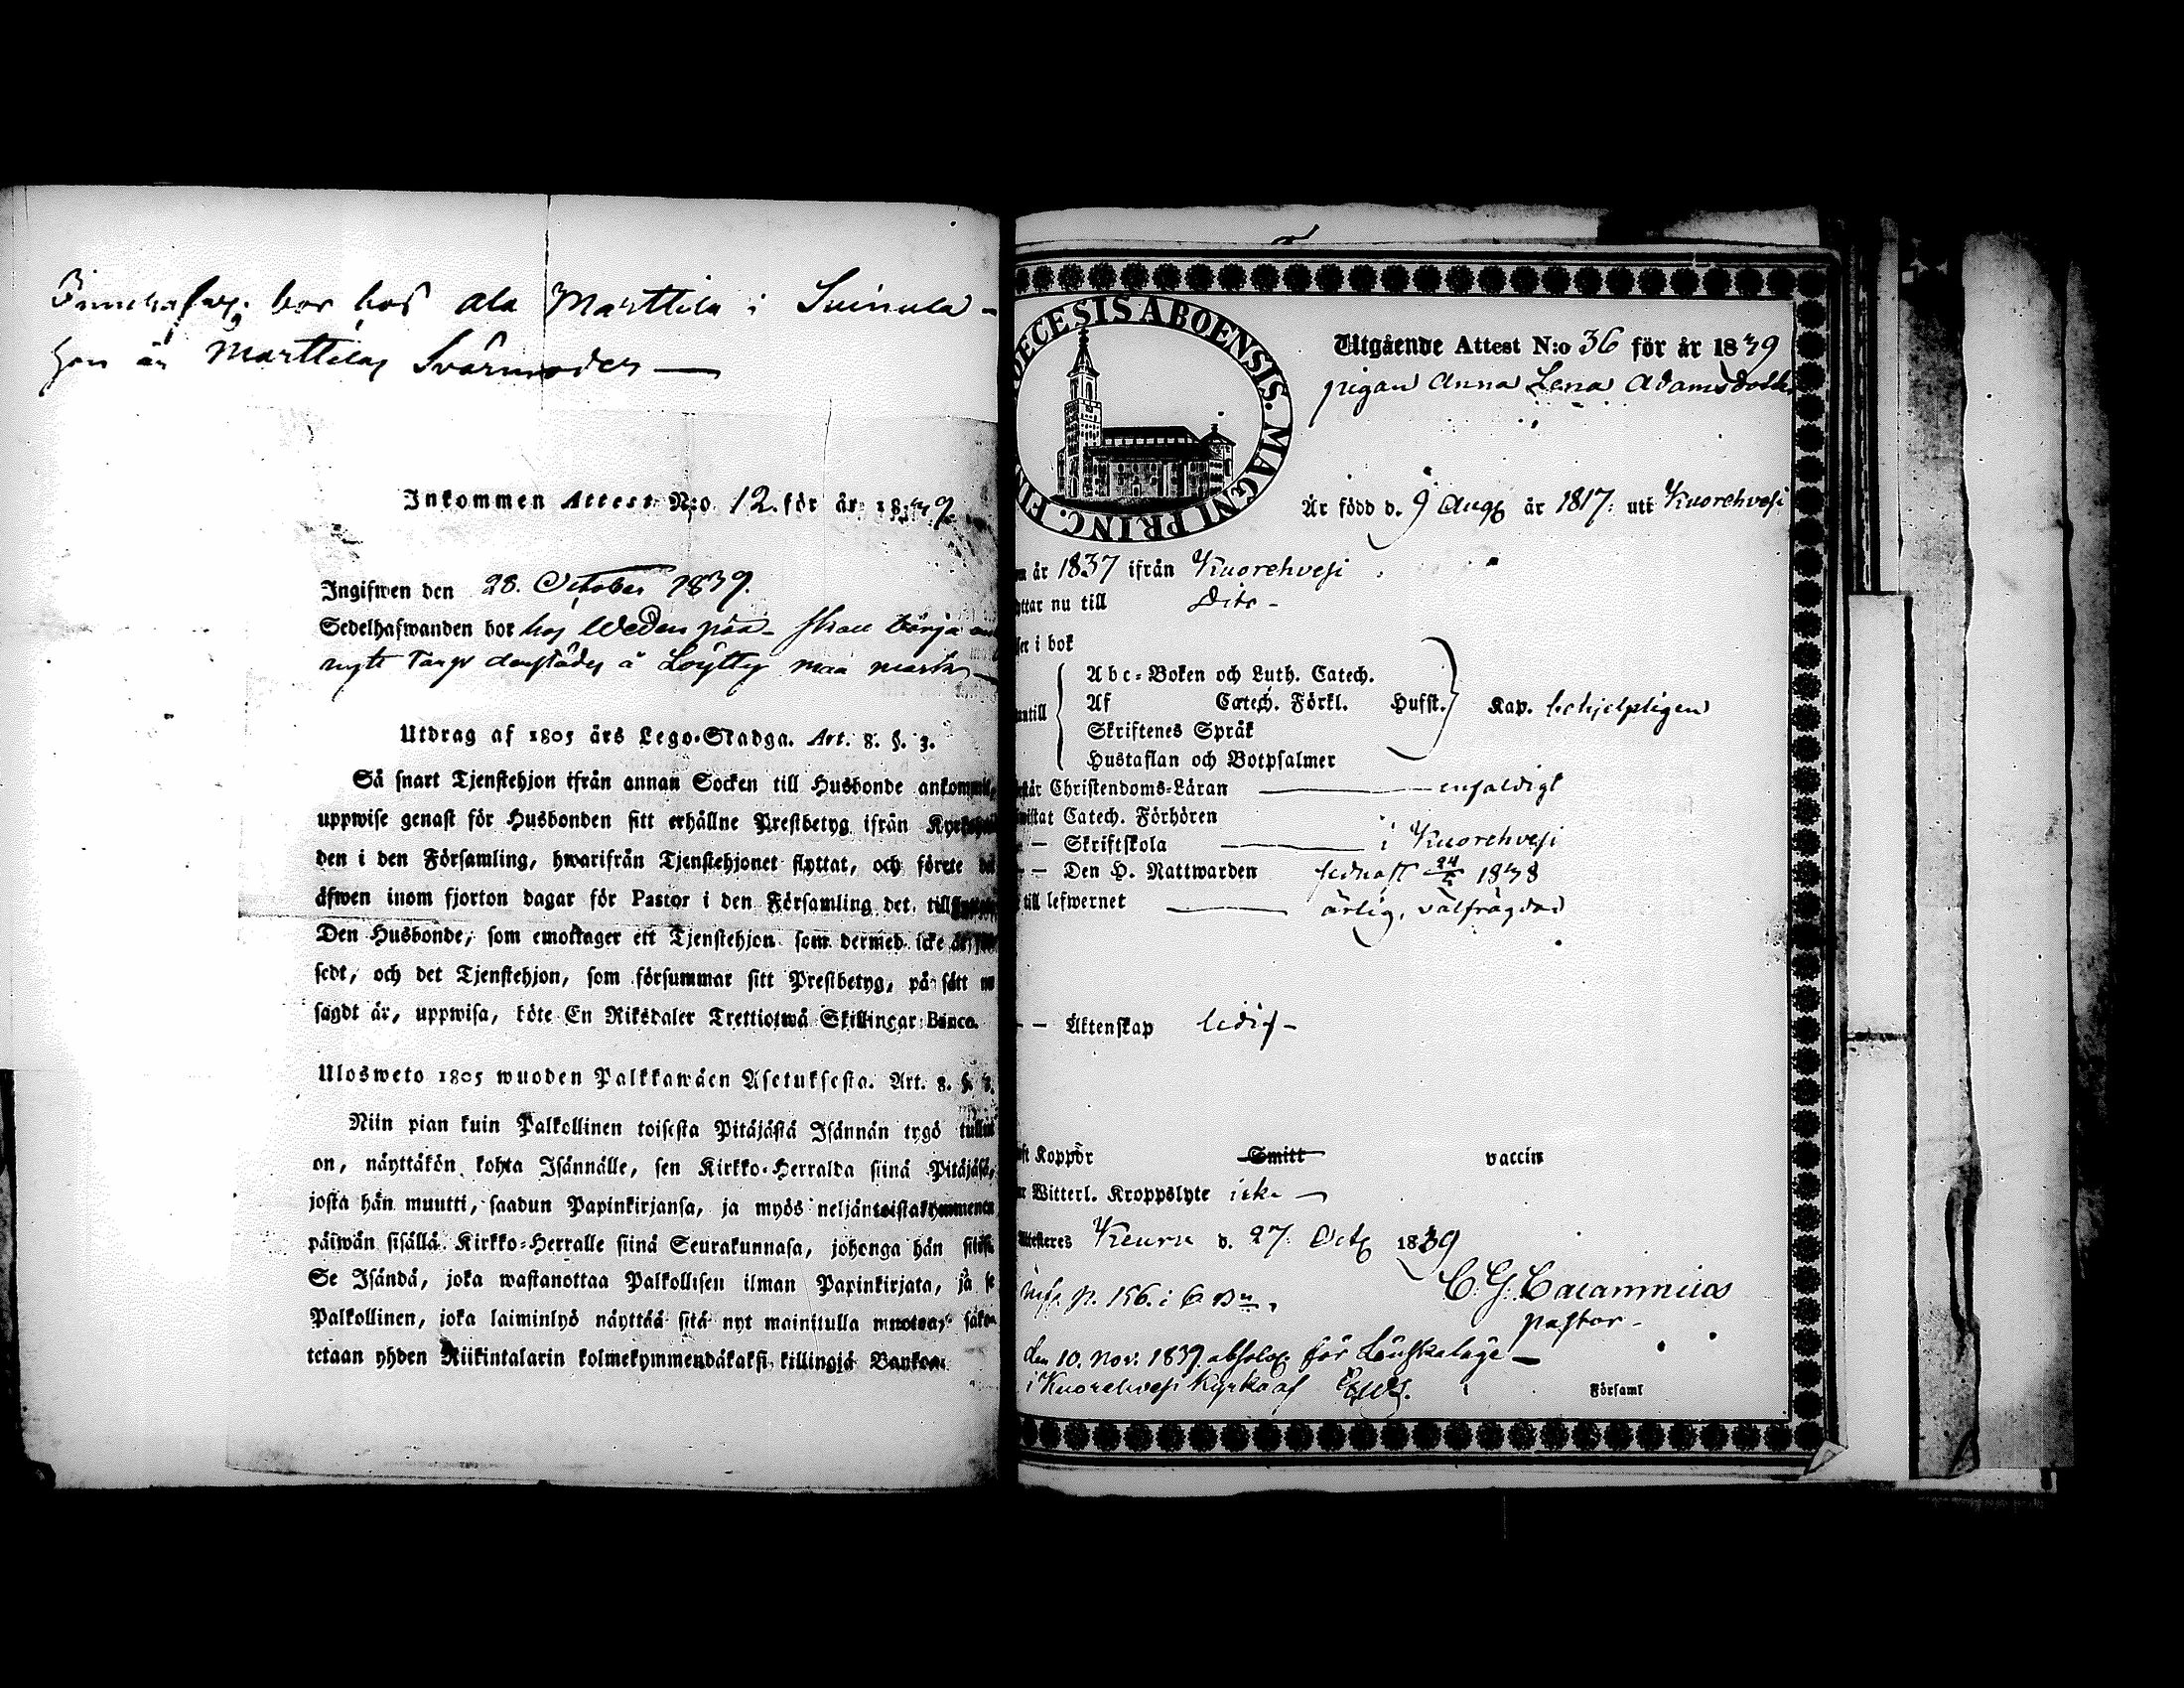 bor hos Ala Marttila i Suinula -
Hon är Marttilas Svärmoder —
Inkommen Attest N:o 12. för år 1839.
Ingifwen den 28. October 1839.
Sedelhafwanden bor hos Weden pää - skall börja
nytt
Utdrag af 1805 års Lego-Stadga. Art. 8. §. 3.
Så snart Tjenstehjon ifrån annan Socken till Husbonde
uppwise genast för Husbonden sitt erhållne Prestbetyg ifrån
den i den Församling, hwarifrån Tjenstehjonet flyttat, och förete
äfwen inom fjorton dagar för Pastor i den Församling det
Den Husbonde, som emottager ett Tjenstehjon som dermed icke är
sedt, och det Tjenstehjon, som försummar sitt Prestbetyg, på sätt nu
sagdt är, uppwisa, böte En Riksdaler Trettiotwå Skillingar Banco.
Ulosweto 1805 wuoden Palkkawäen Asetuksesta. Art. 8. §. 3.
Niin pian kuin Palkollinen toisesta Pitäjästä Isännän tygö tullut
on, näyttäkön kohta Isännälle, sen Kirkko-Herralda siinä Pitäjäsä,
josta hän muutti, saadun Papinkirjansa, ja myös neljäntoistakymmenen
päiwän sisällä Kirkko-Herralle siinä Seurakunnasa, johonga hän
Se Isändä, joka wastanottaa Palkollisen ilman Papinkirjata, ja se
Palkollinen, joka laiminlyö näyttää sitä nyt mainitulla muotoa, sako-
tetaan yhden Riikintalarin kolmekymmendäkaksi killingiä Bankoa.
DECESIS ABOENSIS. MAGNI PRINC. FIN
Utgående Attest N:o 36 för år 1839
pigan Anna Lena Adamsdotter
Är född d. 9 Aug. år 1817. uti Kuorehvesi
år 1837 ifrån Kuorehvesi
ttar nu till Dito -
i bok
Abc-Boken och Luth. Catech.
Af Catech. Förkl. Hufst. Kap. behjelpligen
Skriftenes Språk
Hustaflan och Botpsalmer
Christendoms-Läran — enfaldigt
Catech. Förhören
— Skriftskola — i Kuorehvesi
— Den H. Nattwarden sednast 1838
till lefwernet — ärlig, välfrägdad
— Äktenskap ledig -
Koppor Smitt vaccin
Witterl. Kroppslyte icke —
Keuru d. 27. Oct. 1839
p. 156. i
Pastor -
den 10. Nov. 1839. absolv. för Lönskaläge —
i Kuorehvesi Kyrka af
Församl